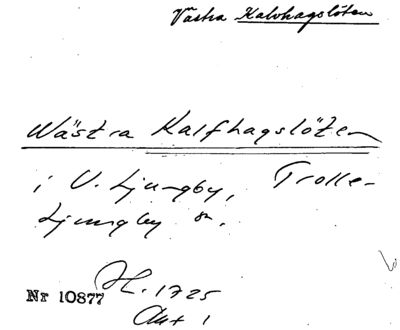 Västra Kalvhagslöten
Wästra Kalfhagslöten
i V. Ljungby, Trolle-
Ljungby sn.
H. 1725
Nr 10877
Akt 1